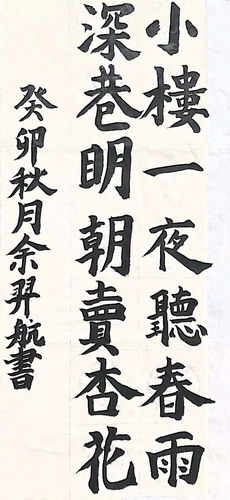 小樓一夜聽春雨
深巷明朝賣杏花
癸卯秋月余羿航書